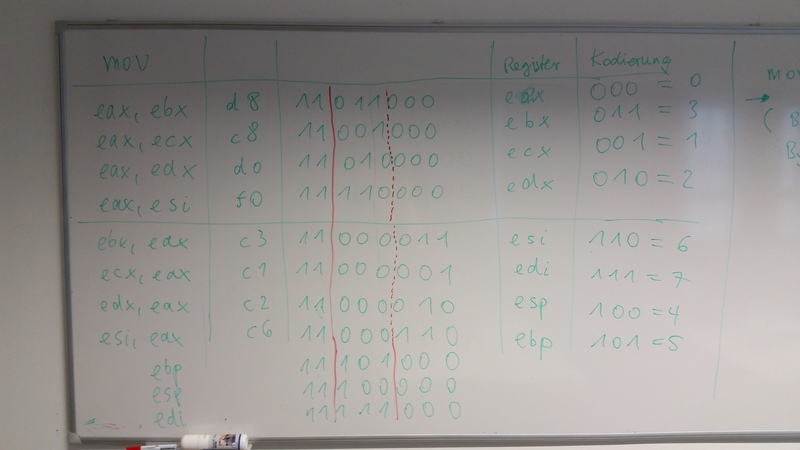 mov Register Kodierung
eax, ebx d8 11 011 000 eax 000 = 0
eax, ecx c8 11 001 000 ebx 011 = 3
eax, edx d0 11 010 000 ecx 001 = 1
eax, esi f0 11 110 000 edx 010 = 2
ebx, eax c3 11 000 011 esi 110 = 6
ecx, eax c1 11 000 001 edi 111 = 7
edx, eax c2 11 000 010 esp 100 = 4
esi, eax c6 11 000 110 ebp 101 = 5
ebp 11 101 000
esp 11 100 000
edi 11 111 000